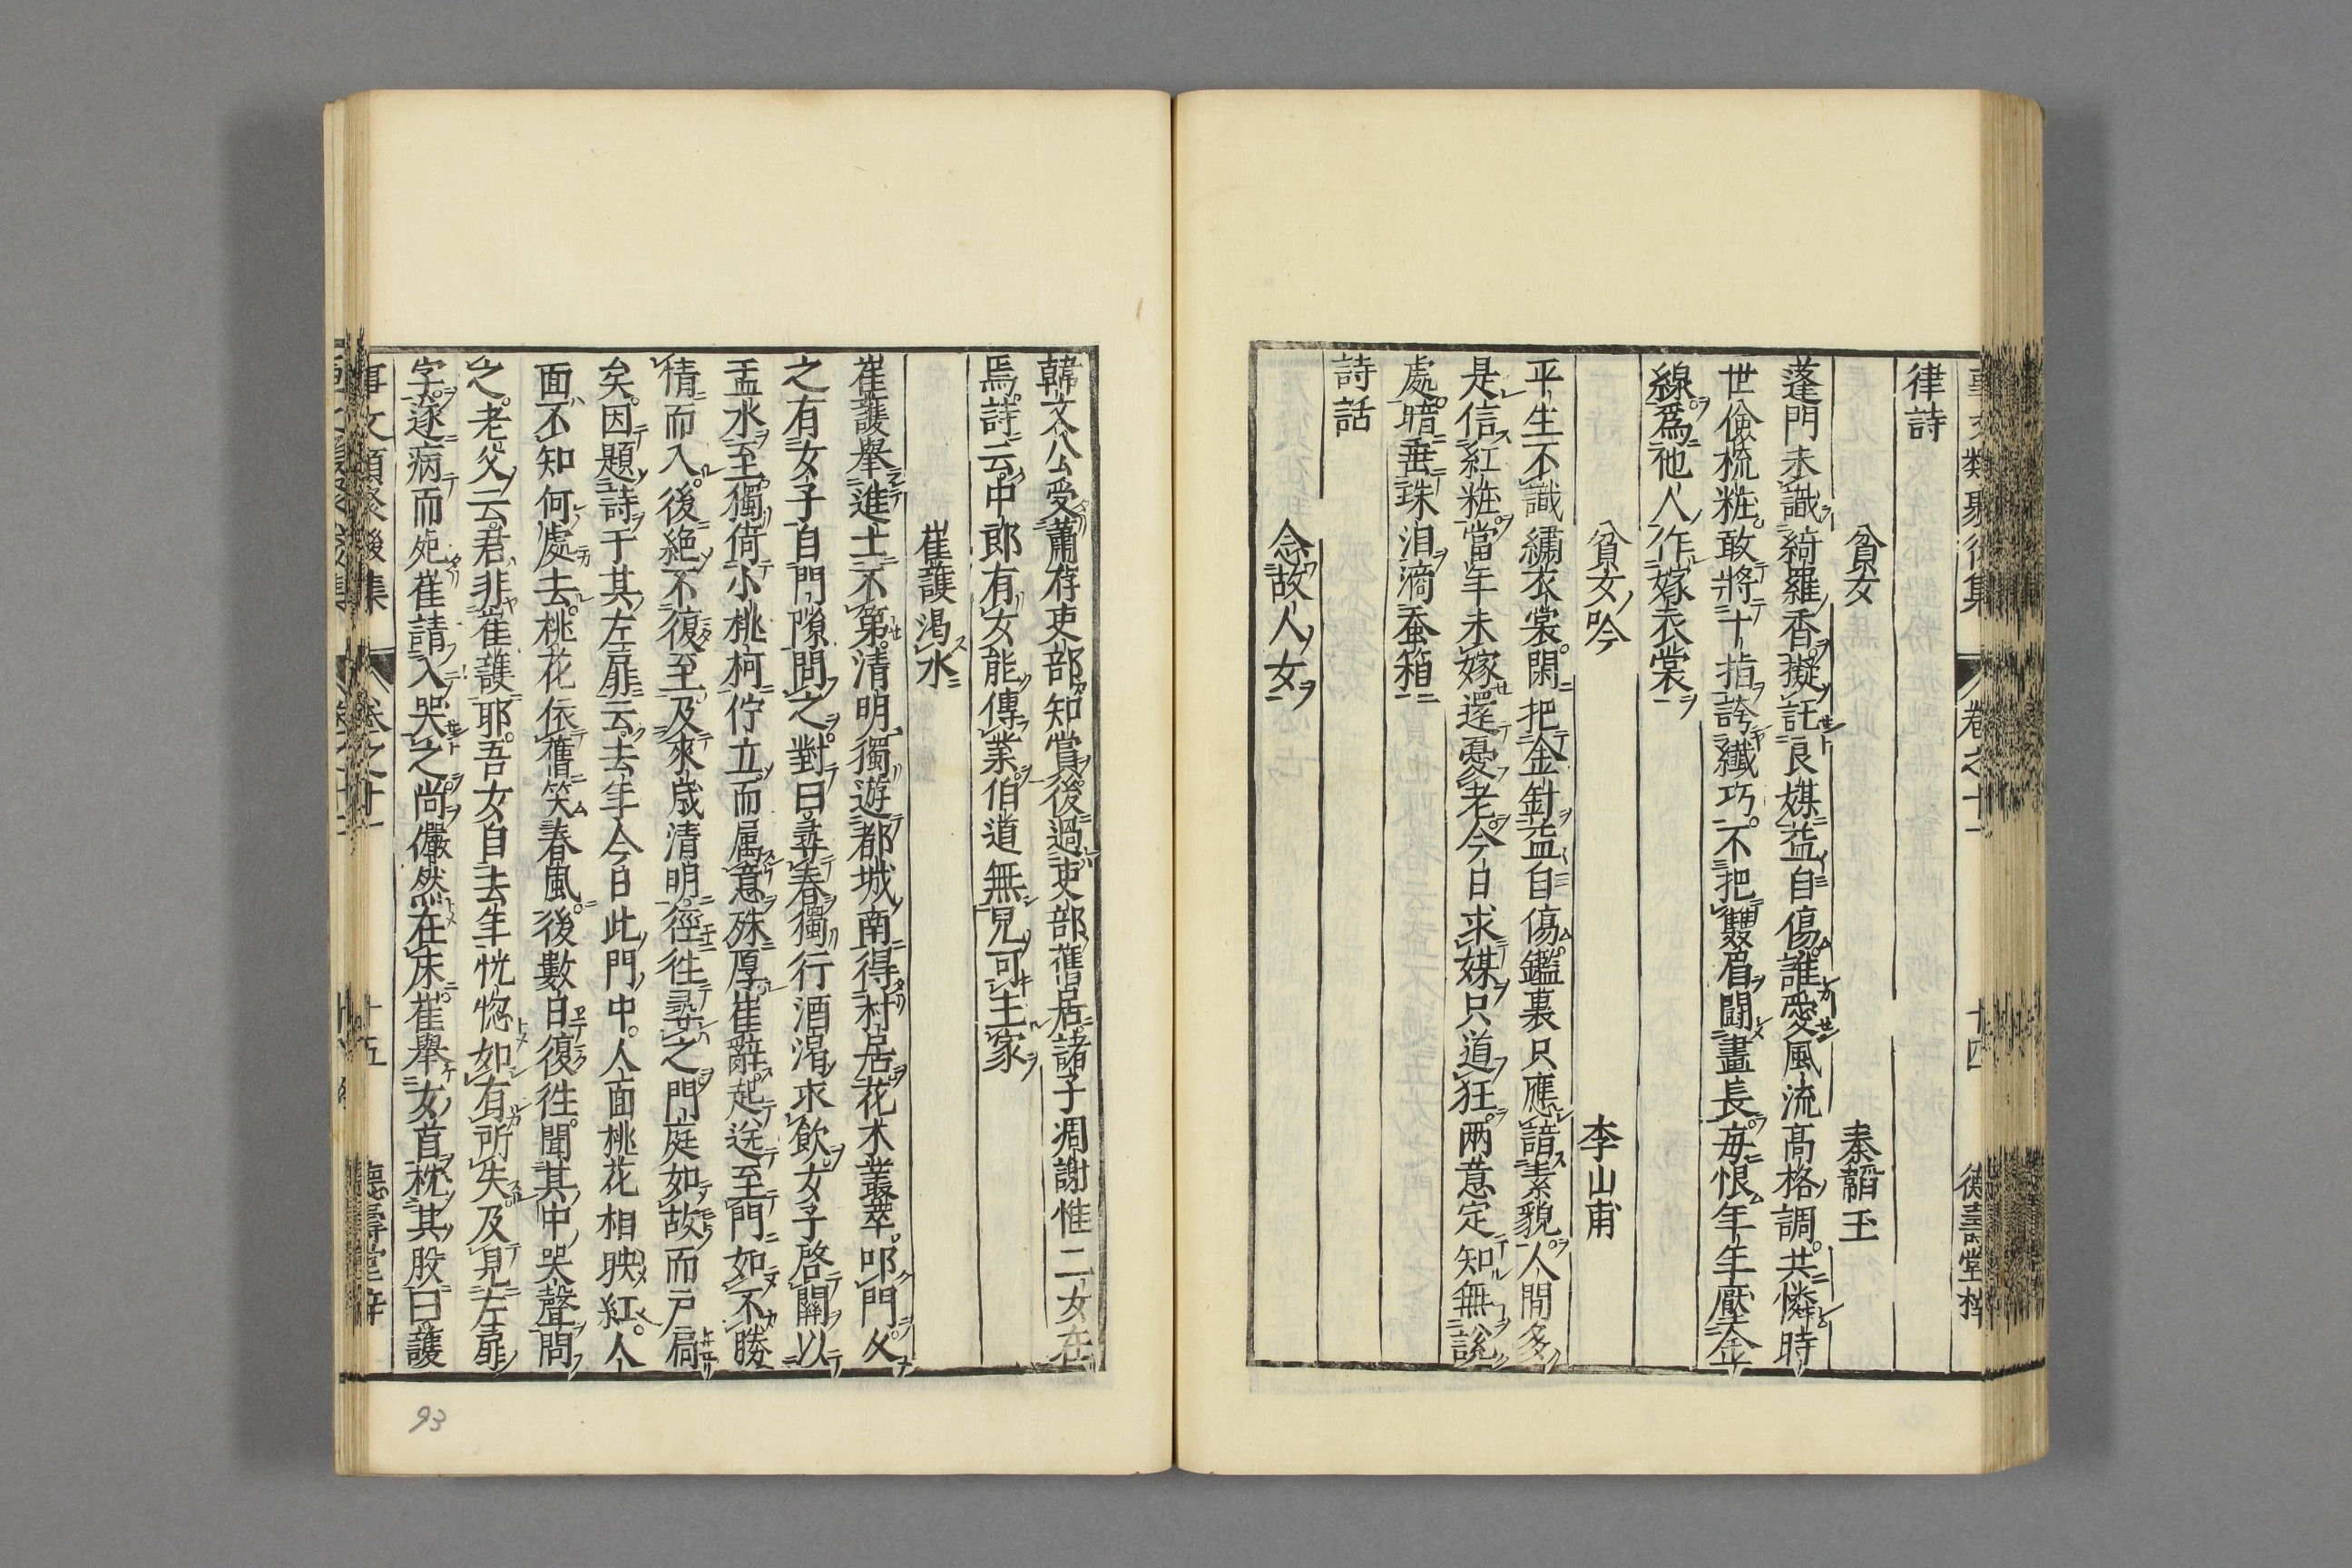 律詩
貧女 秦韜玉
蓬門未識綺羅香擬託良媒益自傷誰愛風流高格調共憐時
世儉梳粧敢將十指誇纖巧不把雙眉鬪畫長每恨年年壓金
線爲他人作嫁衣裳
貧女吟 李山甫
平生不識繡衣裳閑把金針益自傷鑑裏只應諳素貌人間多
是信紅粧當年未嫁還憂老今日求媒只道狂兩意定知無說
處暗垂珠泪滴蚕箱
詩話
念故人女
韓文公受蕭存吏部知賞後過吏部舊居諸子凋謝惟二女在
焉詩云中郎有女能傳業伯道無兒可主家
崔護渇水
崔護舉進士不第清明獨遊都城南得村居花木叢萃叩門久
之有女子自門隙問之對曰尋春獨行酒渇求飲女子啓關以
盂水至獨倚小桃柯佇立而属意殊厚崔辭起送至門如不勝
情而入後絶不復至及來歳清明徑往尋之門庭如故而戸扃
矣因題詩于其左扉云去年今日此門中人面桃花相映紅人
面不知何處去桃花依舊笑春風後數日復往聞其中哭聲問
之老父云君非崔護耶吾女自去年恍惚如有所失及見左扉
字遂病而死崔請入哭之尚儼然在床崔舉女首枕其股曰護
事文類聚後集 卷之十一 十五 德壽堂梓
93